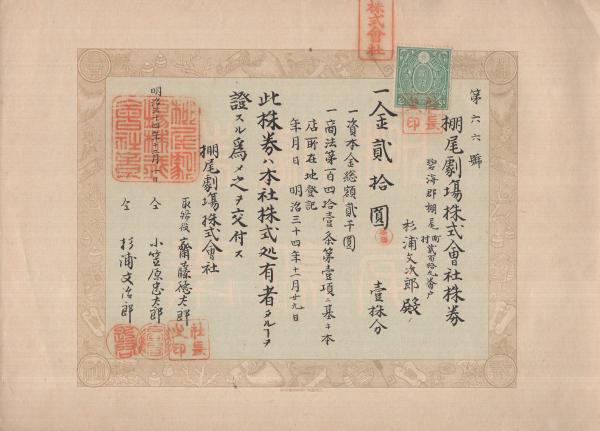 株式會社
第六六號
棚尾劇塲株式會社株券
碧海郡棚尾町村貳百拾九番戸
杉浦文次郎殿
一金貳拾圓 壹株分
一資本金総額貳千圓
一商法第百四拾壹条第壹項ニ基キ本
店所在地登記
年月日 明治三十四年十一月廿九日
此株券ハ本社株式処有者タルヿヲ
證スル為メ之ヲ交付ス
棚尾劇塲株式會社
明治三十四年十二月一日
取締役 齋藤徳太郎
仝 小笠原忠太郎
仝 杉浦文治郎
棚尾劇塲株式會社之印
社長之印